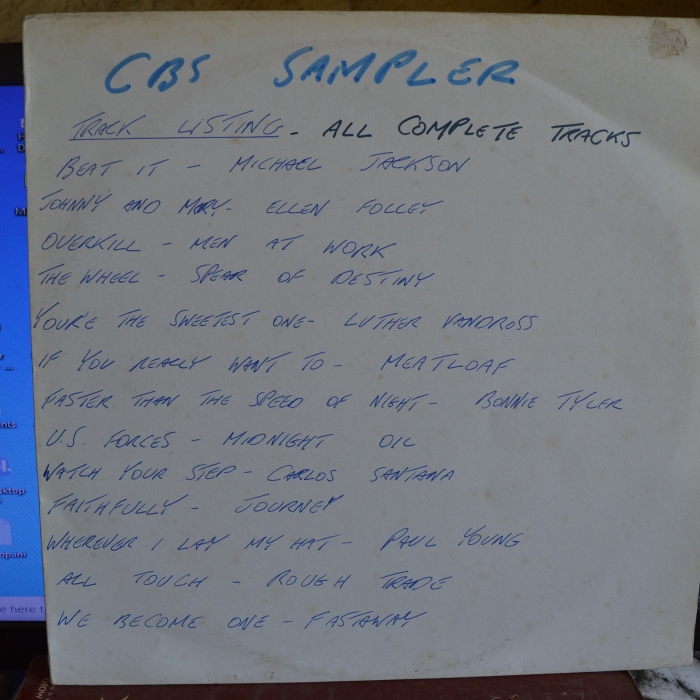 CBS SAMPLER
TRACK LISTING - ALL COMPLETE TRACKS
BEAT IT - MICHAEL JACKSON
JOHNNY AND MARY - ELLEN FOLLEY
OVERKILL - MEN AT WORK
THE WHEEL - SPEAR OF DESTINY
YOUR'E THE SWEETEST ONE - LUTHER VANDROSS
IF YOU REALLY WANT TO - MEATLOAF
FASTER THAN THE SPEED OF NIGHT - BONNIE TYLER
U.S. FORCES - MIDNIGHT OIL
WATCH YOUR STEP - CARLOS SANTANA
FAITHFULLY - JOURNEY
WHEREVER I LAY MY HAT - PAUL YOUNG
ALL TOUCH - ROUGH TRADE
WE BECOME ONE - FASTAWAY
e here t